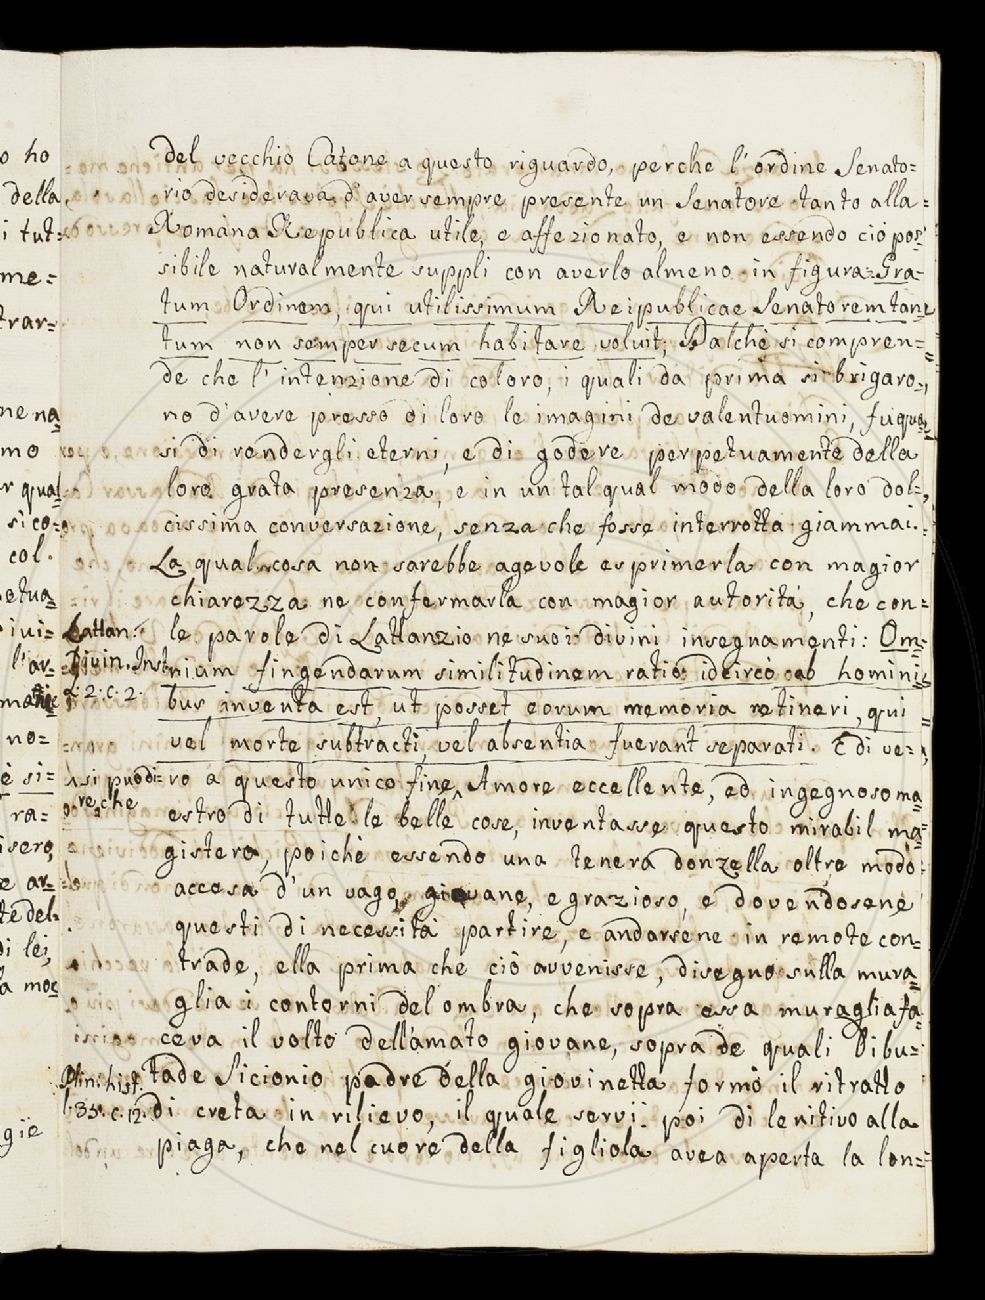 o ho
della
i tut-
me=
trar=
ne na
mo
r qual
si co=
col.
etua
ivi=
l'ar=
no=
è si=
ra=
isero
e ar=
te del=
di lei,
a mo
gie
del vecchio Catone a questo riguardo, perche l'ordine Senato=
rio desiderava d'aver sempre presente un Senatore tanto alla=
Romana Republica utile, e affezionato, e non essendo ciò pos=
sibile naturalmente supplì con averlo almeno in figura: Gra=
tum Ordinem, qui utilissimum Reipublicae Senatorem tan=
tum non semper secum habitare voluit; Dalchè si compren=
de che l'intenzione di coloro, i quali da prima si brigaro=
no d'avere presso di loro le imagini de valentuomini, fu qua=
si di rendergli eterni, e di godere perpetuamente della
loro grata presenza, e in un tal qual modo della loro dol=
cissima conversazione, senza che fosse interrotta giammai.
La qual cosa non sarebbe agevole esprimerla con magior
chiarezza ne confermarla con magior autorità, che con=
Lattan:
le parole di Lattanzio ne suoi divini insegnamenti: Om=
Divin. Inst.
nium fingendarum similitudinem ratio idcircò ab homini=
L. 2. c. 2.
bus inventa est, ut posset eorum memoria retineri, qui
vel morte subtracti, vel absentia fuerant separati. E di ve=
^si può di=
re, che
ro a questo unico fine^ Amore eccellente, ed ingegnoso ma=
estro di tutte le belle cose, inventasse questo mirabil ma=
gistero, poichè essendo una tenera donzella oltre modo
accesa d'un vago, giovane, e grazioso, e dovendosene
questi di necessità partire, e andarsene in remote con=
trade, ella prima che ciò avvenisse, disegno sulla mura=
glia i contorni del ombra, che sopra essa muraglia fa=
ceva il volto dell'amato giovane, sopra de quali Dibu=
Plin: hist.
tade Sicionio padre della giovinetta formò il ritratto
l. 35. c. 12.
di creta in rilievo, il quale servì poi di lenitivo alla
piaga, che nel cuore della figliola avea aperta la lon=